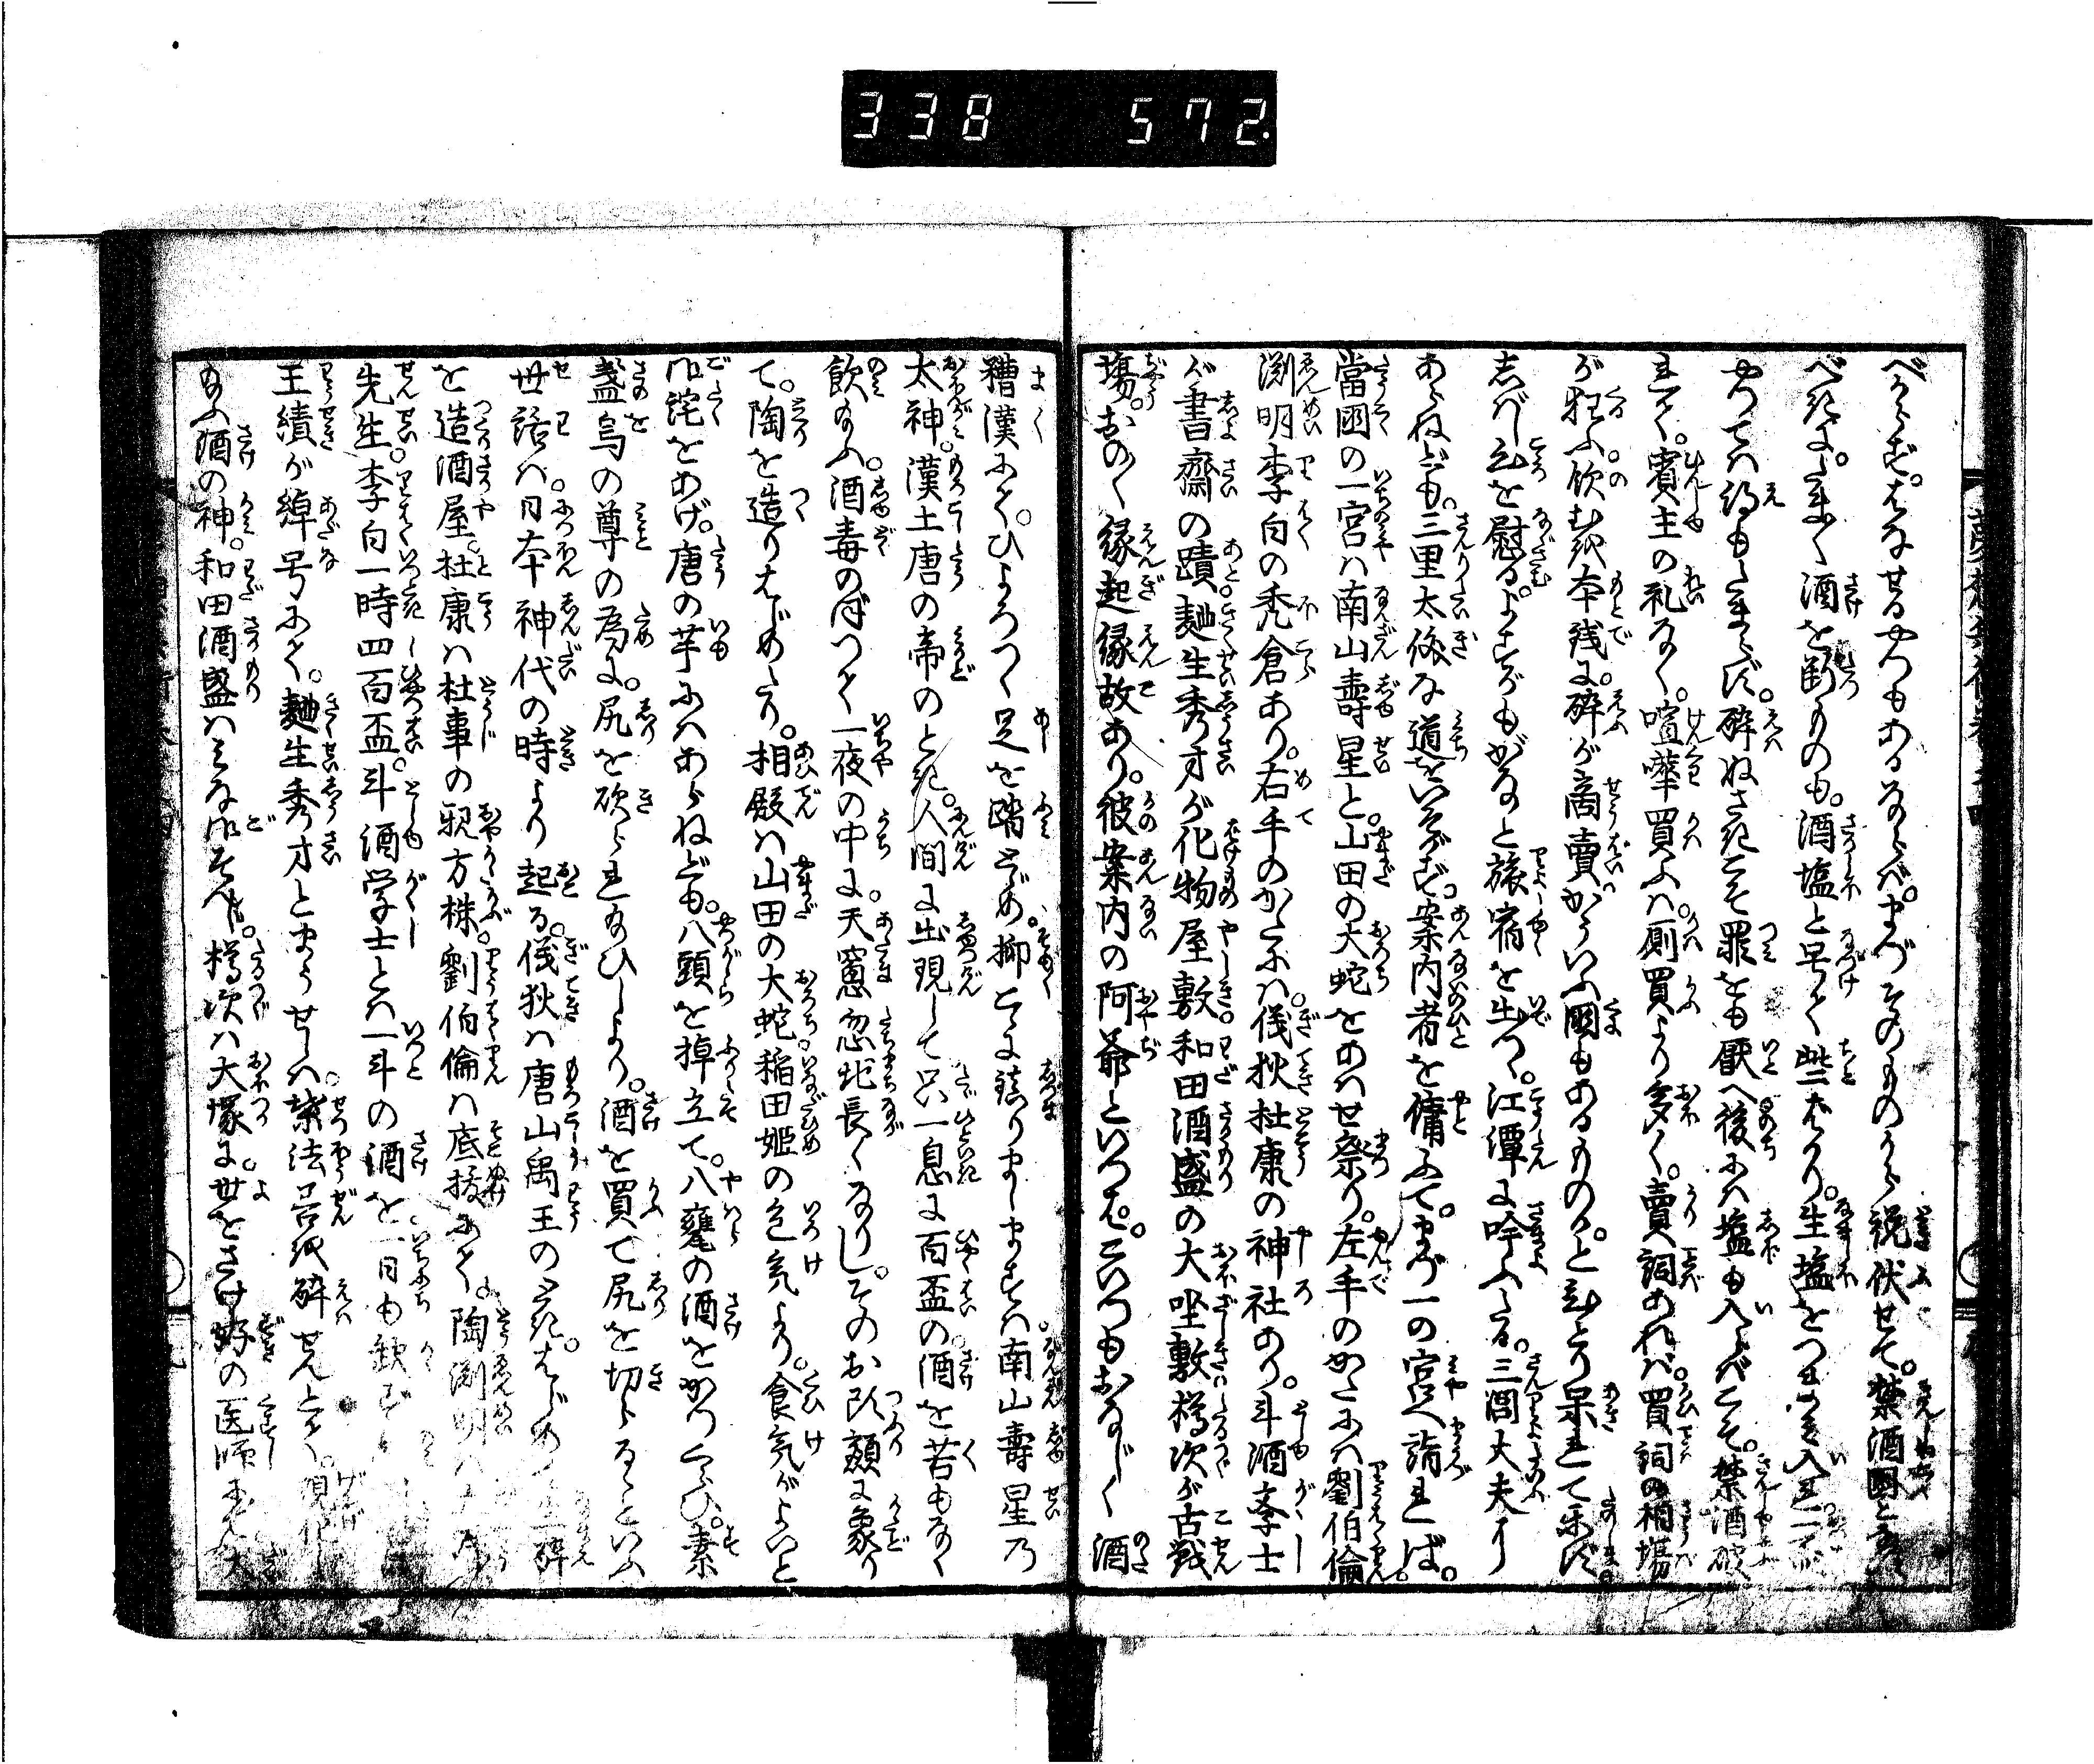 338 572.
べからず。はなせるやつもあるならば。まづそのものから説伏せて。禁酒国と
べきに。たま〳〵酒を断ものも。酒塩と号て些ばかり。生塩をつまみ入れ
やつてハ得もたまらず。酔ねさきこそ罪をも厭へ後にハ塩も入らばこそ。禁酒破
れて。賓主の礼なく。喧嘩買ふハ。厠買より多く。賣詞あれバ。買詞の相場
が狂ふ。飲むが本残に。酔が商賣かういふ国もあるものかと。ひとり呆れて楽ず。
しばし心を慰る。よすがもがなと旅宿を出つ。江潭に吟ふたる。三閭大夫に
あらねども。三里太儀な道をいそがず。案内者を傭ふて。まづ一の宮へ詣れば。
當国の一宮ハ南山壽星と。山田の大蛇をあハせ祭り。左手のかたにハ劉伯倫
渕明李白の禿倉あり。右手のかたにハ。儀狄杜康の神社あり。斗酒学士
が書齋の蹟。麹生秀才が化物屋敷。和田酒盛の大坐敷樽次が古戦
場。おの〳〵縁起縁故あり。彼案内の阿爺といつぱ。こいつもおなじく酒
糟漢にて。ひよろつく足を踏とゞめ。抑こゝに鎮りまします南山壽星乃
太神。漢土唐の帝のとき。人間に出現して只一息に百盃の酒を苦もなく
飲給ふ。酒毒のぼつて一夜の中に。天窓忽地長くなりし。そのお頭顔に象り
て。陶を造りはじめたり。相殿ハ山田の大蛇。稲田姫の色気より。食気がよいと
御詫をあげ。唐の芋にハあらねども。八頭を掉立て。八甕の酒をかつくらひ。素
盞烏の尊の為に。尻を砍られ給ひしより。酒を買て尻を切らるゝといふ
世話ハ。日本神代の時より起る。儀狄ハ唐山禹王のとき。はじめて生酔
を造酒屋。杜康ハ杜事の親方株。劉伯倫ハ底抜にて陶渕明ハ
先生。李白一時四百盃。斗酒学士とハ一斗の酒を一日も歓ず
王績が綽号にて。麹生秀才とまうせしハ。葉法善を酔せんとて。現化し
給ふ酒の神。和田酒盛ハみな御ぞんじ。樽次ハ大塚に。世をさけ好の医師